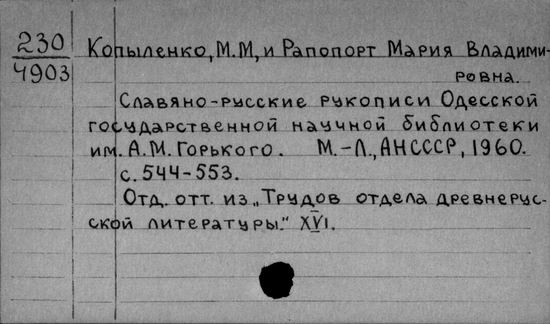 230
4903
Копыленко, М.М, и Рапопорт Мария Владими-
ровна.
Славяно-русские рукописи Одесской
государственной научной библиотеки
им. А.М. Горького. М.-Л., АНСССР, 1960.
с. 544-553.
Отд. отт. из „Трудов отдела древнерус-
ской литературы." XVI.